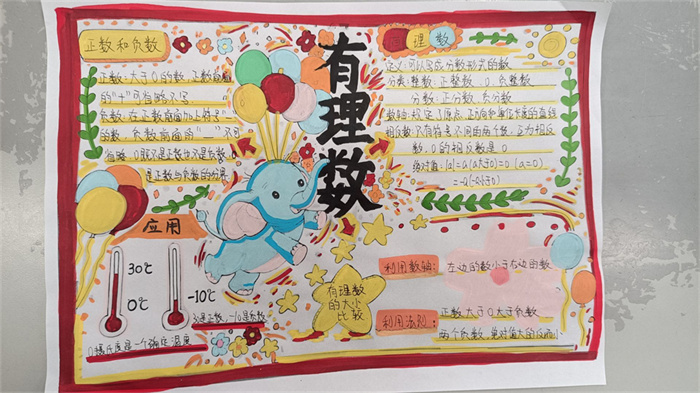 有理数
正数和负数
正数:大于0的数,正数前面
的"+"可省略不写
负数:在正数前面加上符号"-"
的数,负数前面的"-"不可
省略,0既不是正数也不是负数,0
是正数与负数的分界
应用
30℃
0℃
-10℃
30是正数,-10是负数
0摄氏度是一个确定温度
理 数
定义:可以写成分数形式的数
分类:整数:正整数、0、负整数
分数:正分数、负分数
数轴:规定了原点、正方向和单位长度的直线
相反数:只有符号不同的两个数,互为相反
数,0的相反数是0
绝对值:|a|=a
=0(a=0)
有理数
的大小
比较
利用数轴:
左边的数小于右边的数
利用法则:
正数大于0,大于负数
两个负数,绝对值大的反而小